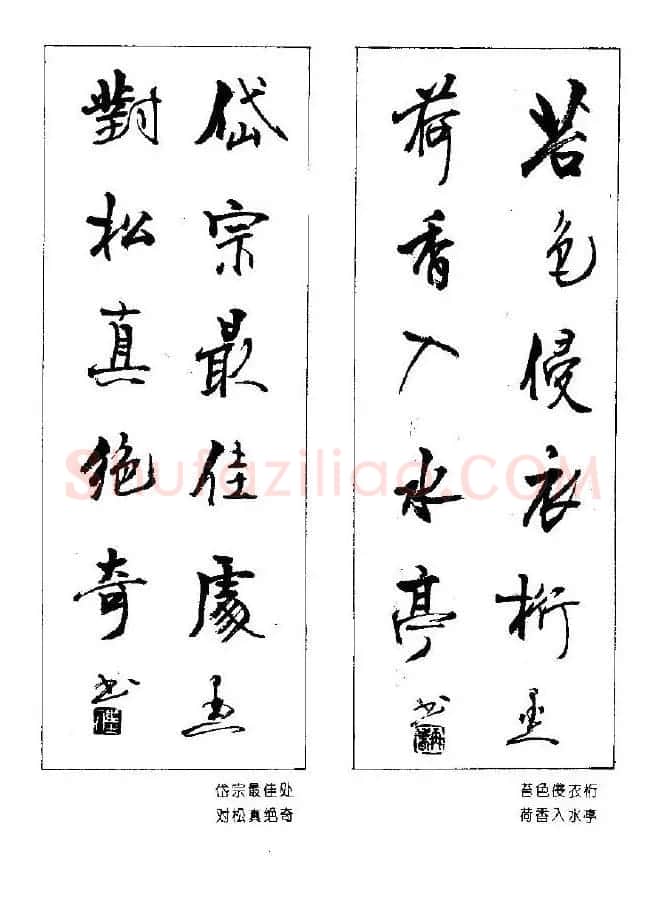 苔色侵衣桁
荷香入水亭
书
岱宗最佳處
對松真绝奇
书
Shufaziliao.com
苔色侵衣桁
荷香入水亭
岱宗最佳处
对松真绝奇